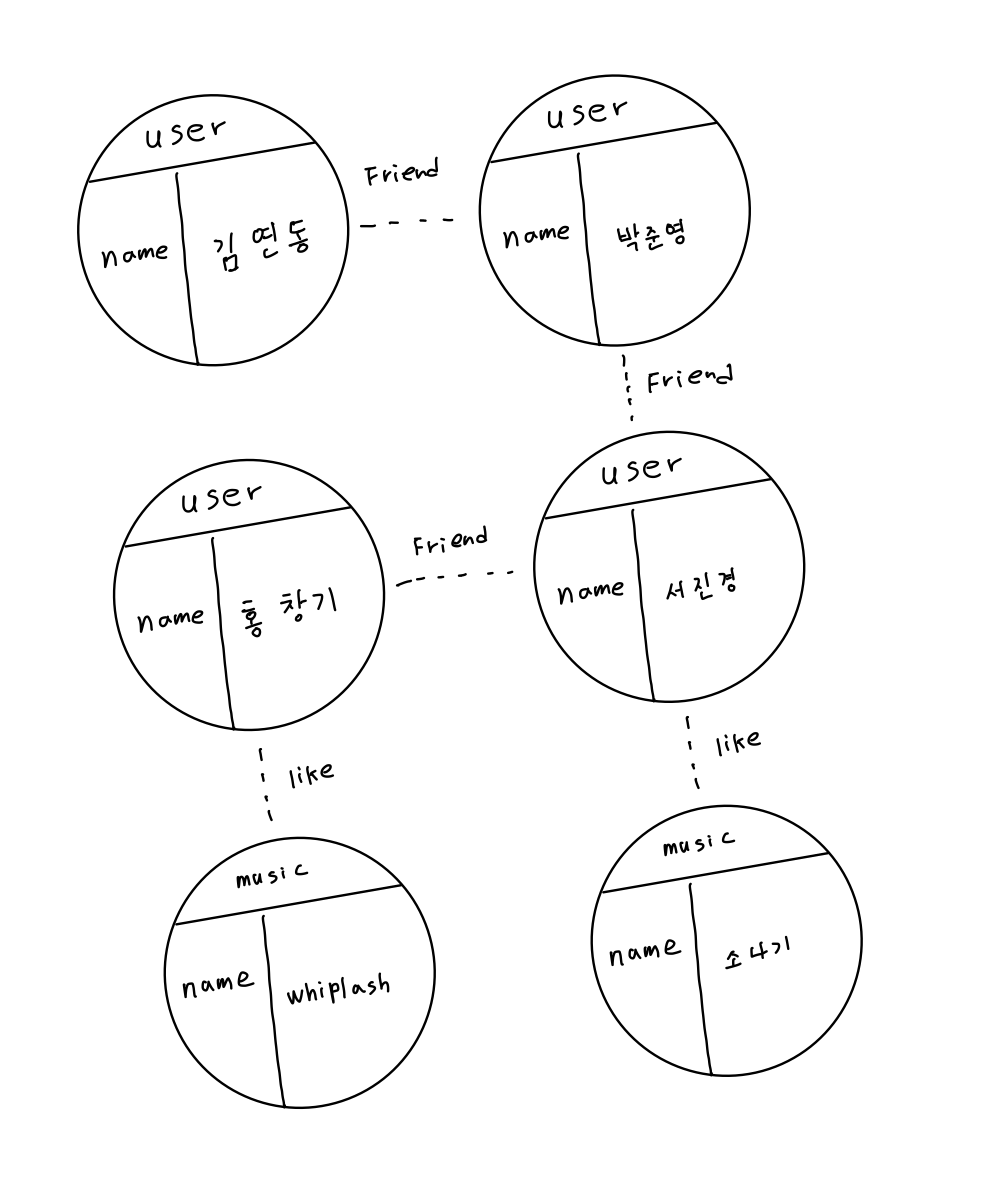 user
name 김연동
Friend
user
name 박준영
Friend
user
name 홍창기
Friend
user
name 서진경
like
like
music
name whiplash
music
name 소나기